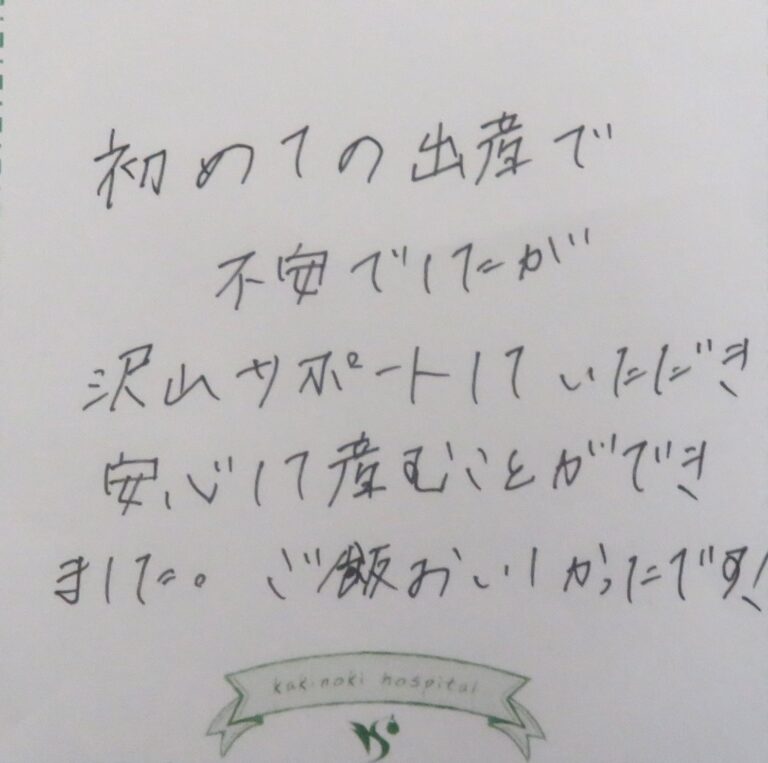 初めての出産で
不安でしたが
沢山サポートしていただき
安心して産むことができ
ました。ご飯おいしかったです!
kakinoki hospital